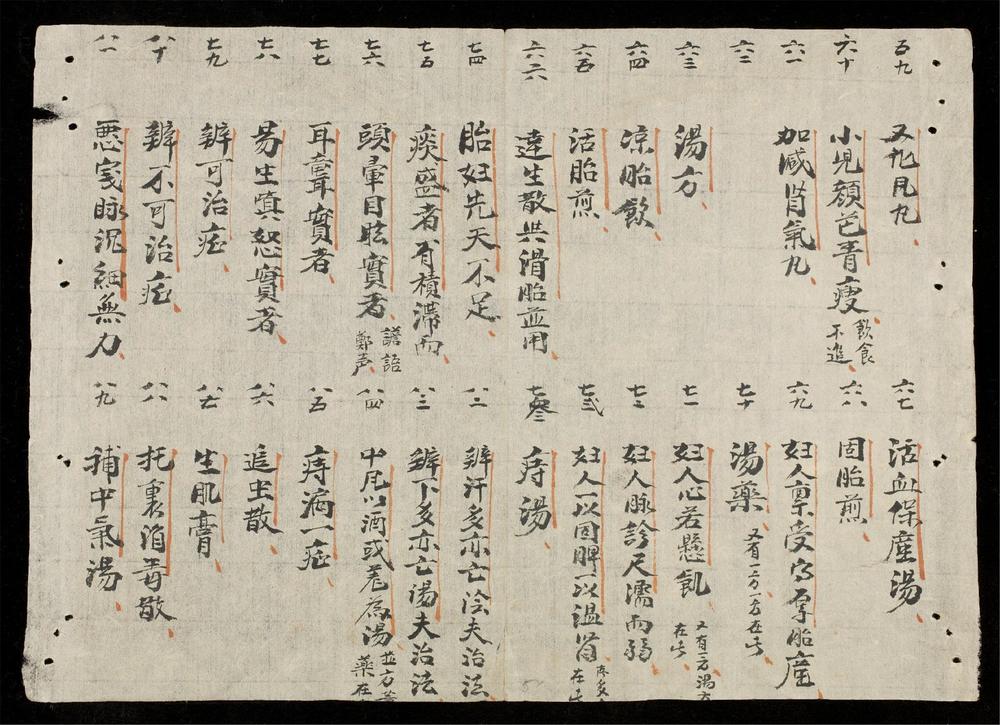 五九 又九凡丸
六十 小兒顏色青瘦 飲食不進
六一 加减腎氣丸
六二
六三 湯方
六四 凉胎飲
六五 活胎煎
六六 達生散與滑胎並用
七四 胎妇先天不足
七五 痰盛者有積滯而
七六 頭暈目眩實者 譫語鄭声
七七 耳聋實者
七八 易生嗔怒實者
七九 辨可治症
八十 辨不可治症
八一 悪寒脉沉細無力
六七 活血保產湯
六八 固胎煎
六九 妇人稟受寔厚胎產
七十 湯藥 又有一方一方在此
七一 妇人心若懸飢 又有一方湯方在此
七二 妇人脉診尺濡而弱
七弎 妇人一以固脾一以温胃 在此
七叁 痔湯
八二 辨汗多亦亡 夫治法
八三 辨下多亦亡湯夫治法
八四 中尾以酒或羌為湯 並方 藥在
八五 痔病一症
八六 追虫散
八七 生肌膏
八八 托裏消毒散
八九 補中氣湯